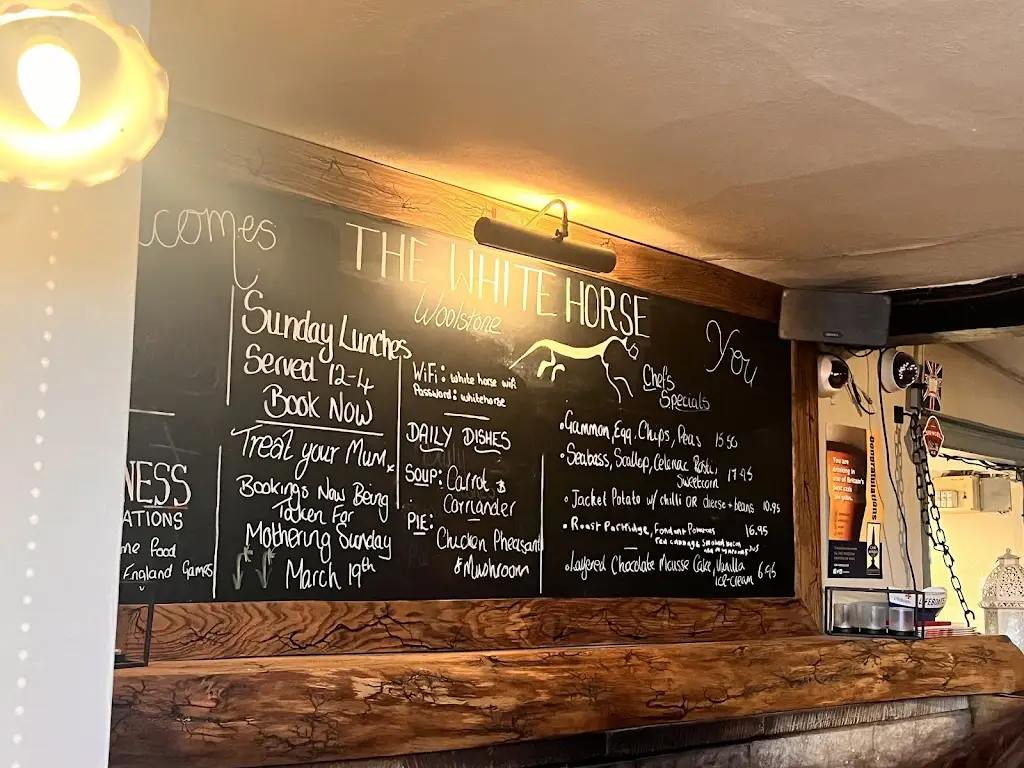 comes
THE WHITE HORSE
Woolstone
You
NESS
ATIONS
me food
England Games
Sunday Lunches
Served 12-4
Book Now
Treat your Mum
Bookings Now Being
Taken For
Mothering Sunday
March 19th
WiFi: white horse wifi
Password: whitehorse
DAILY DISHES
SOUP: Carrot &
Corriander
PIE: Chicken Pheasant
& Mushroom
Chef's
Specials
•Gammon, Egg, Chips, Peas 15.50
•Seabass, Scallop, Celeriac Rosti, 17.95
Sweetcorn
•Jacket Potato w/ chilli OR cheese + beans 10.95
•Roast Partridge, Fondant Potatoes 16.95
Red cabbage Smoked bacon
•Layered Chocolate Mousse Cake, Vanilla
ice-cream 6.95
You are
drinking in
one of Britain's
best cask
ale pubs.
Congratulations
LIFEBOATS